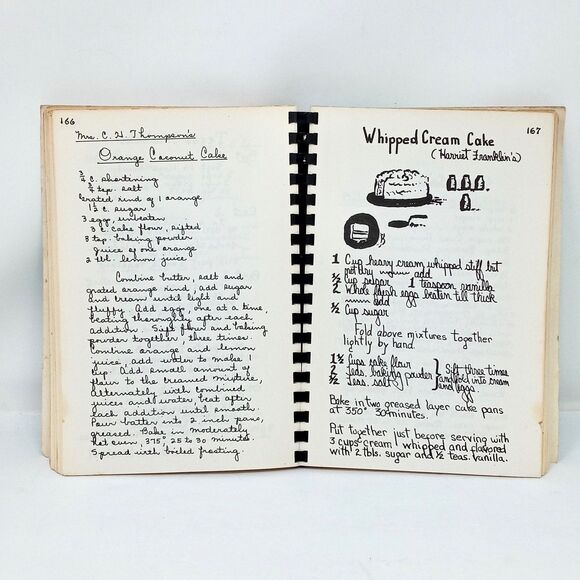 166
Mrs. C. H. Thompson's
Orange Coconut Cake
3/4 c. shortening
3/4 tsp. salt
Grated rind of 1 orange
1 1/2 c. sugar
3 eggs, unbeaten
3 c. cake flour, sifted
3 tsp. baking powder
juice of one orange
2 tbl. lemon juice
Combine butter, salt and
grated orange rind, add sugar
and cream until light and
fluffy. Add eggs, one at a time,
beating thoroughly after each
addition. Sift flour and baking
powder together, three times.
Combine orange and lemon
juice, add water to make 1
cup. Add small amount of
flour to the creamed mixture,
alternately with combined
juices and water, beat after
each addition until smooth.
Pour batter into 2 inch pans,
greased. Bake in moderately
hot oven, 375° 25 to 30 minutes.
Spread with boiled frosting.
167
Whipped Cream Cake
(Harriet Franklin's)
1 Cup heavy cream whipped stiff but
not dry add
1/2 Cup sugar 1 Teaspoon vanilla
2 Whole fresh eggs beaten till thick
add
1/2 Cup sugar
Fold above mixtures together
lightly by hand.
1 1/2 Cups cake flour
2 Teas. baking powder } Sift three times
1/2 Teas. salt and fold into cream
and eggs
Bake in two greased layer cake pans
at 350° 30 minutes.
Put together just before serving with
3 cups cream whipped and flavored
with 2 tbls. sugar and 1/2 teas. vanilla.